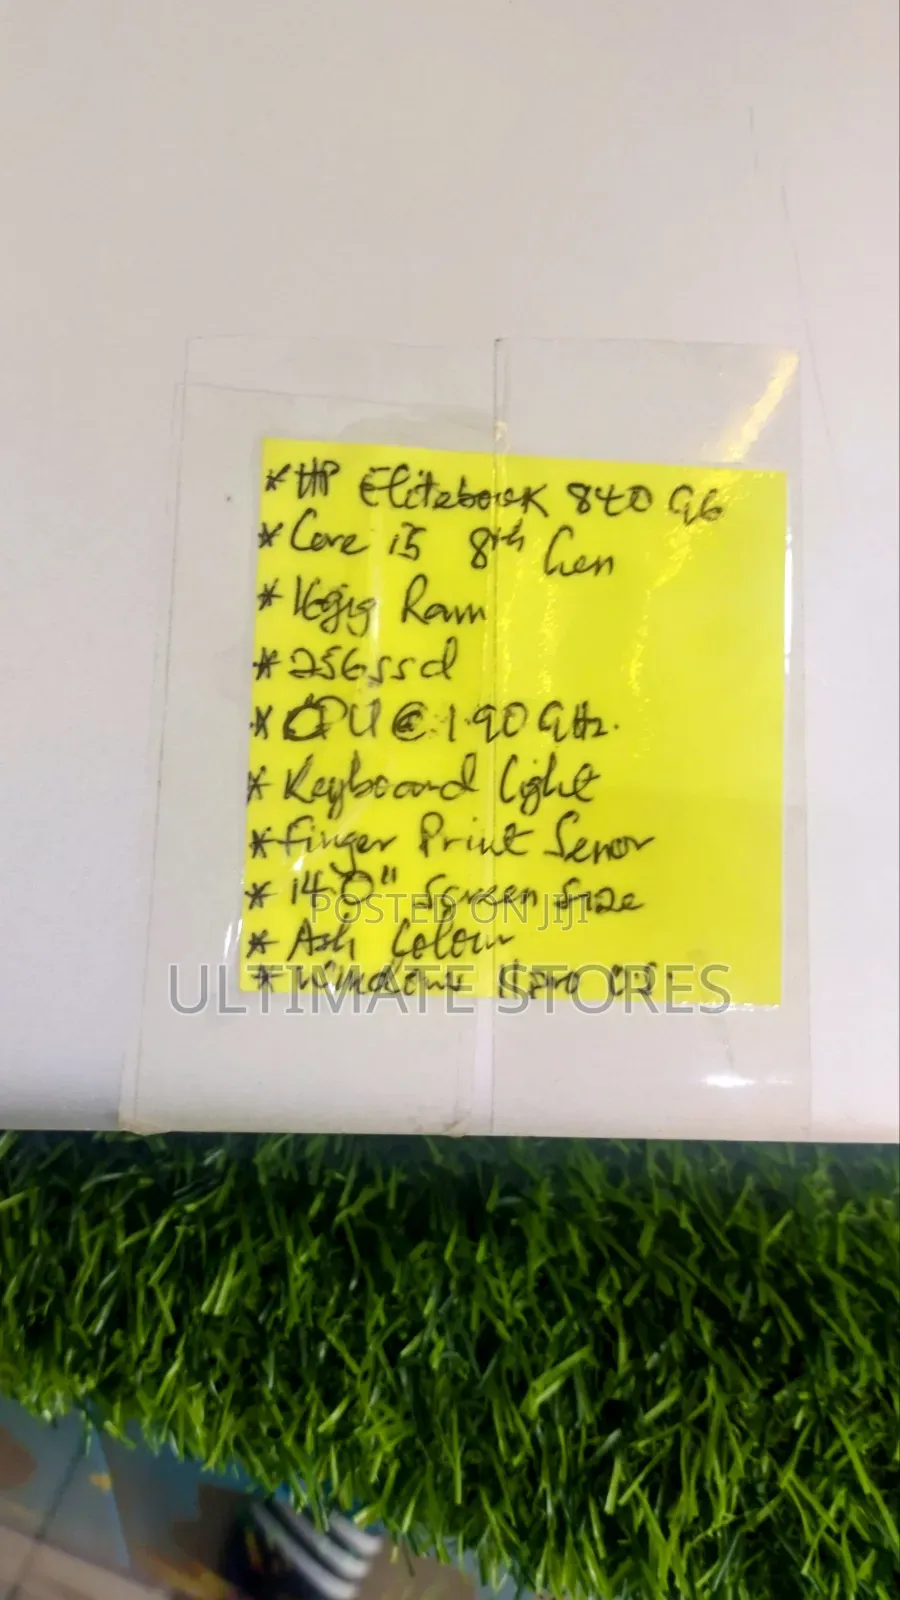 * HP Elitebook 840 G6
* Core i5 8th Gen
* 16gig Ram
* 256ssd
* CPU @ 1.90 GHz.
* Keyboard light
* Finger Print Senor
* 14.0" Sgreen Size
* Ash Colour
POSTED ON JIJI
* Windows 11pro O.S
ULTIMATE STORES